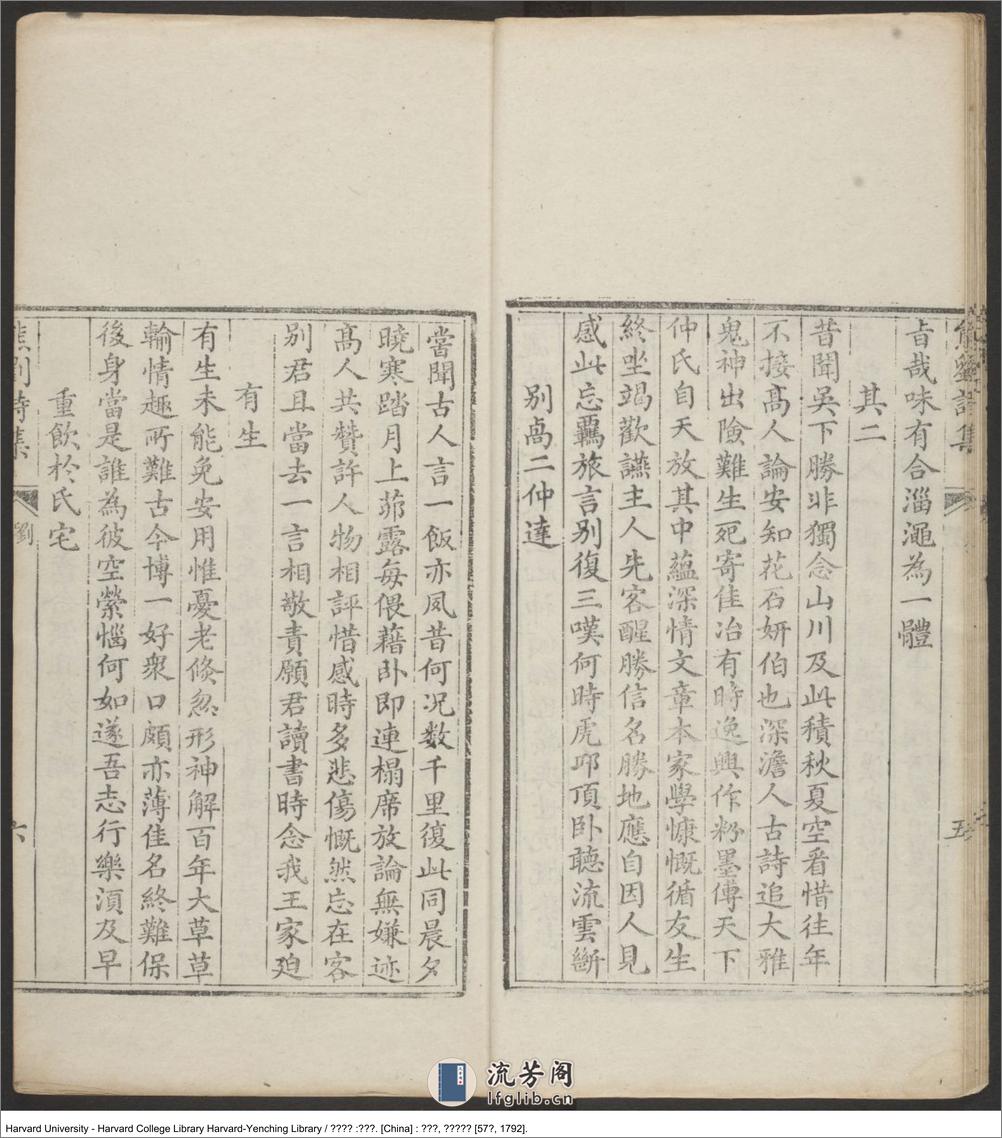 旨哉味有合淄澠為一體
其二
昔聞吳下勝非獨念山川及此積秋夏空看惜往年
不接高人論安知花石妍伯也深澹人古詩追大雅
鬼神出險難生死寄佳冶有時逸興作粉墨傳天下
仲氏自天放其中蘊深情文章本家學慷慨循友生
終坐竭歡讌主人先客醒勝信名勝地應自因人見
感此忘羈旅言別復三嘆何時虎邱頂臥聽流雲斷
別卨二仲達
五
嘗聞古人言一飯亦夙昔何况数千里復此同晨夕
曉寒踏月上茆露每偎藉卧即連榻席放論無嫌迹
髙人共贊許人物相評惜感時多悲傷慨然忘在客
别君且當去一言相敬責願君讀書時念我王家廹
有生
有生未能免安用惟憂老倏忽形神解百年大草草
輪情趣所難古今博一好衆口頗亦薄佳名終難保
後身當是誰為彼空縈惱何如遂吾志行樂須及早
重飲於氏宅
熊劉詩集
劉
六
流芳阁
lfglib.cn
Harvard University - Harvard College Library Harvard-Yenching Library / ???? :???. [China] : ???, ????? [57?, 1792].